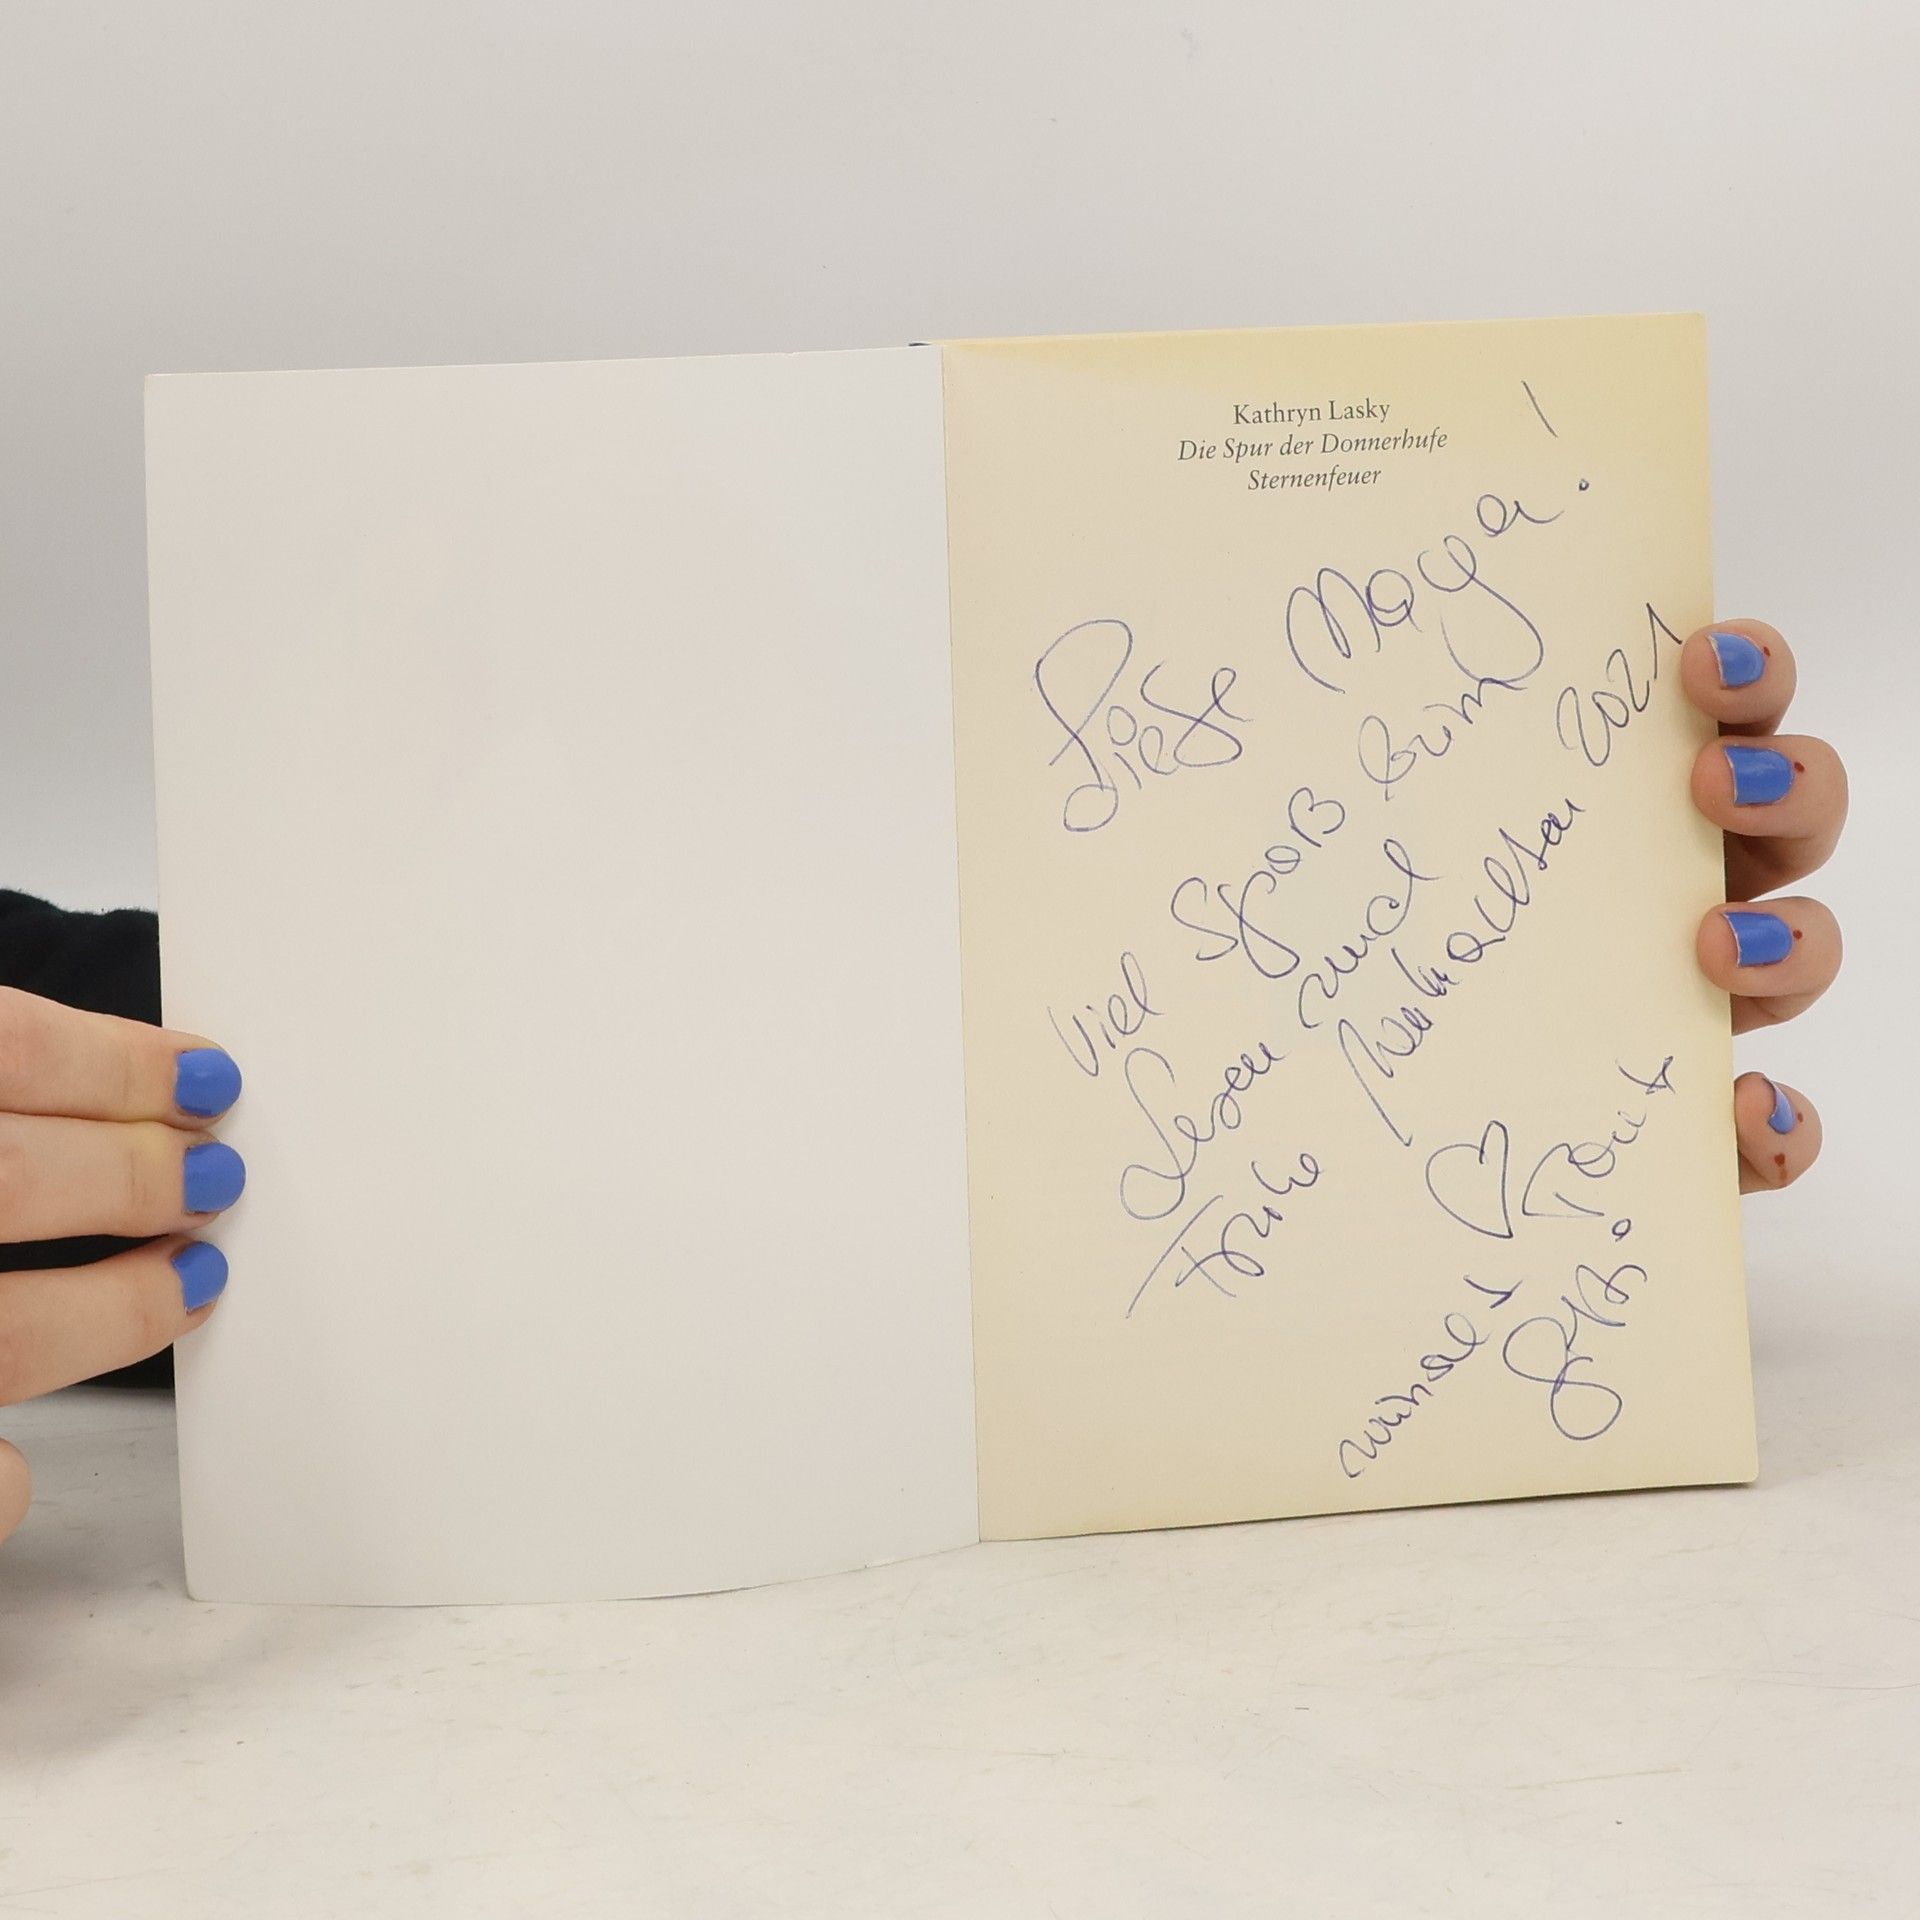 Kathryn Lasky
Die Spur der Donnerhufe
Sternenfeuer
Liebe Maya!
Viel Spaß beim
Lesen und
Frohe Weihnachten 2021
wünscht ♡